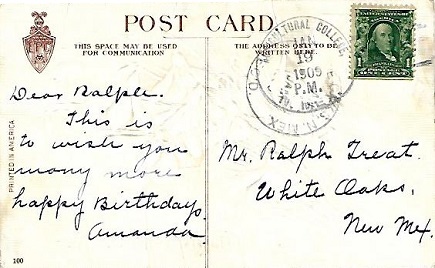 POST CARD.
THIS SPACE MAY BE USED
FOR COMMUNICATION
THE ADDRESS ONLY TO BE
WRITTEN HERE.
JAN
19
1909
P.M.
N. MEX.
1
Dear Ralph.
This is
to wish you
many more
happy Birthdays.
Amanda.
Mr. Ralph Treat.
White Oaks,
New Mex.
PRINTED IN AMERICA
100